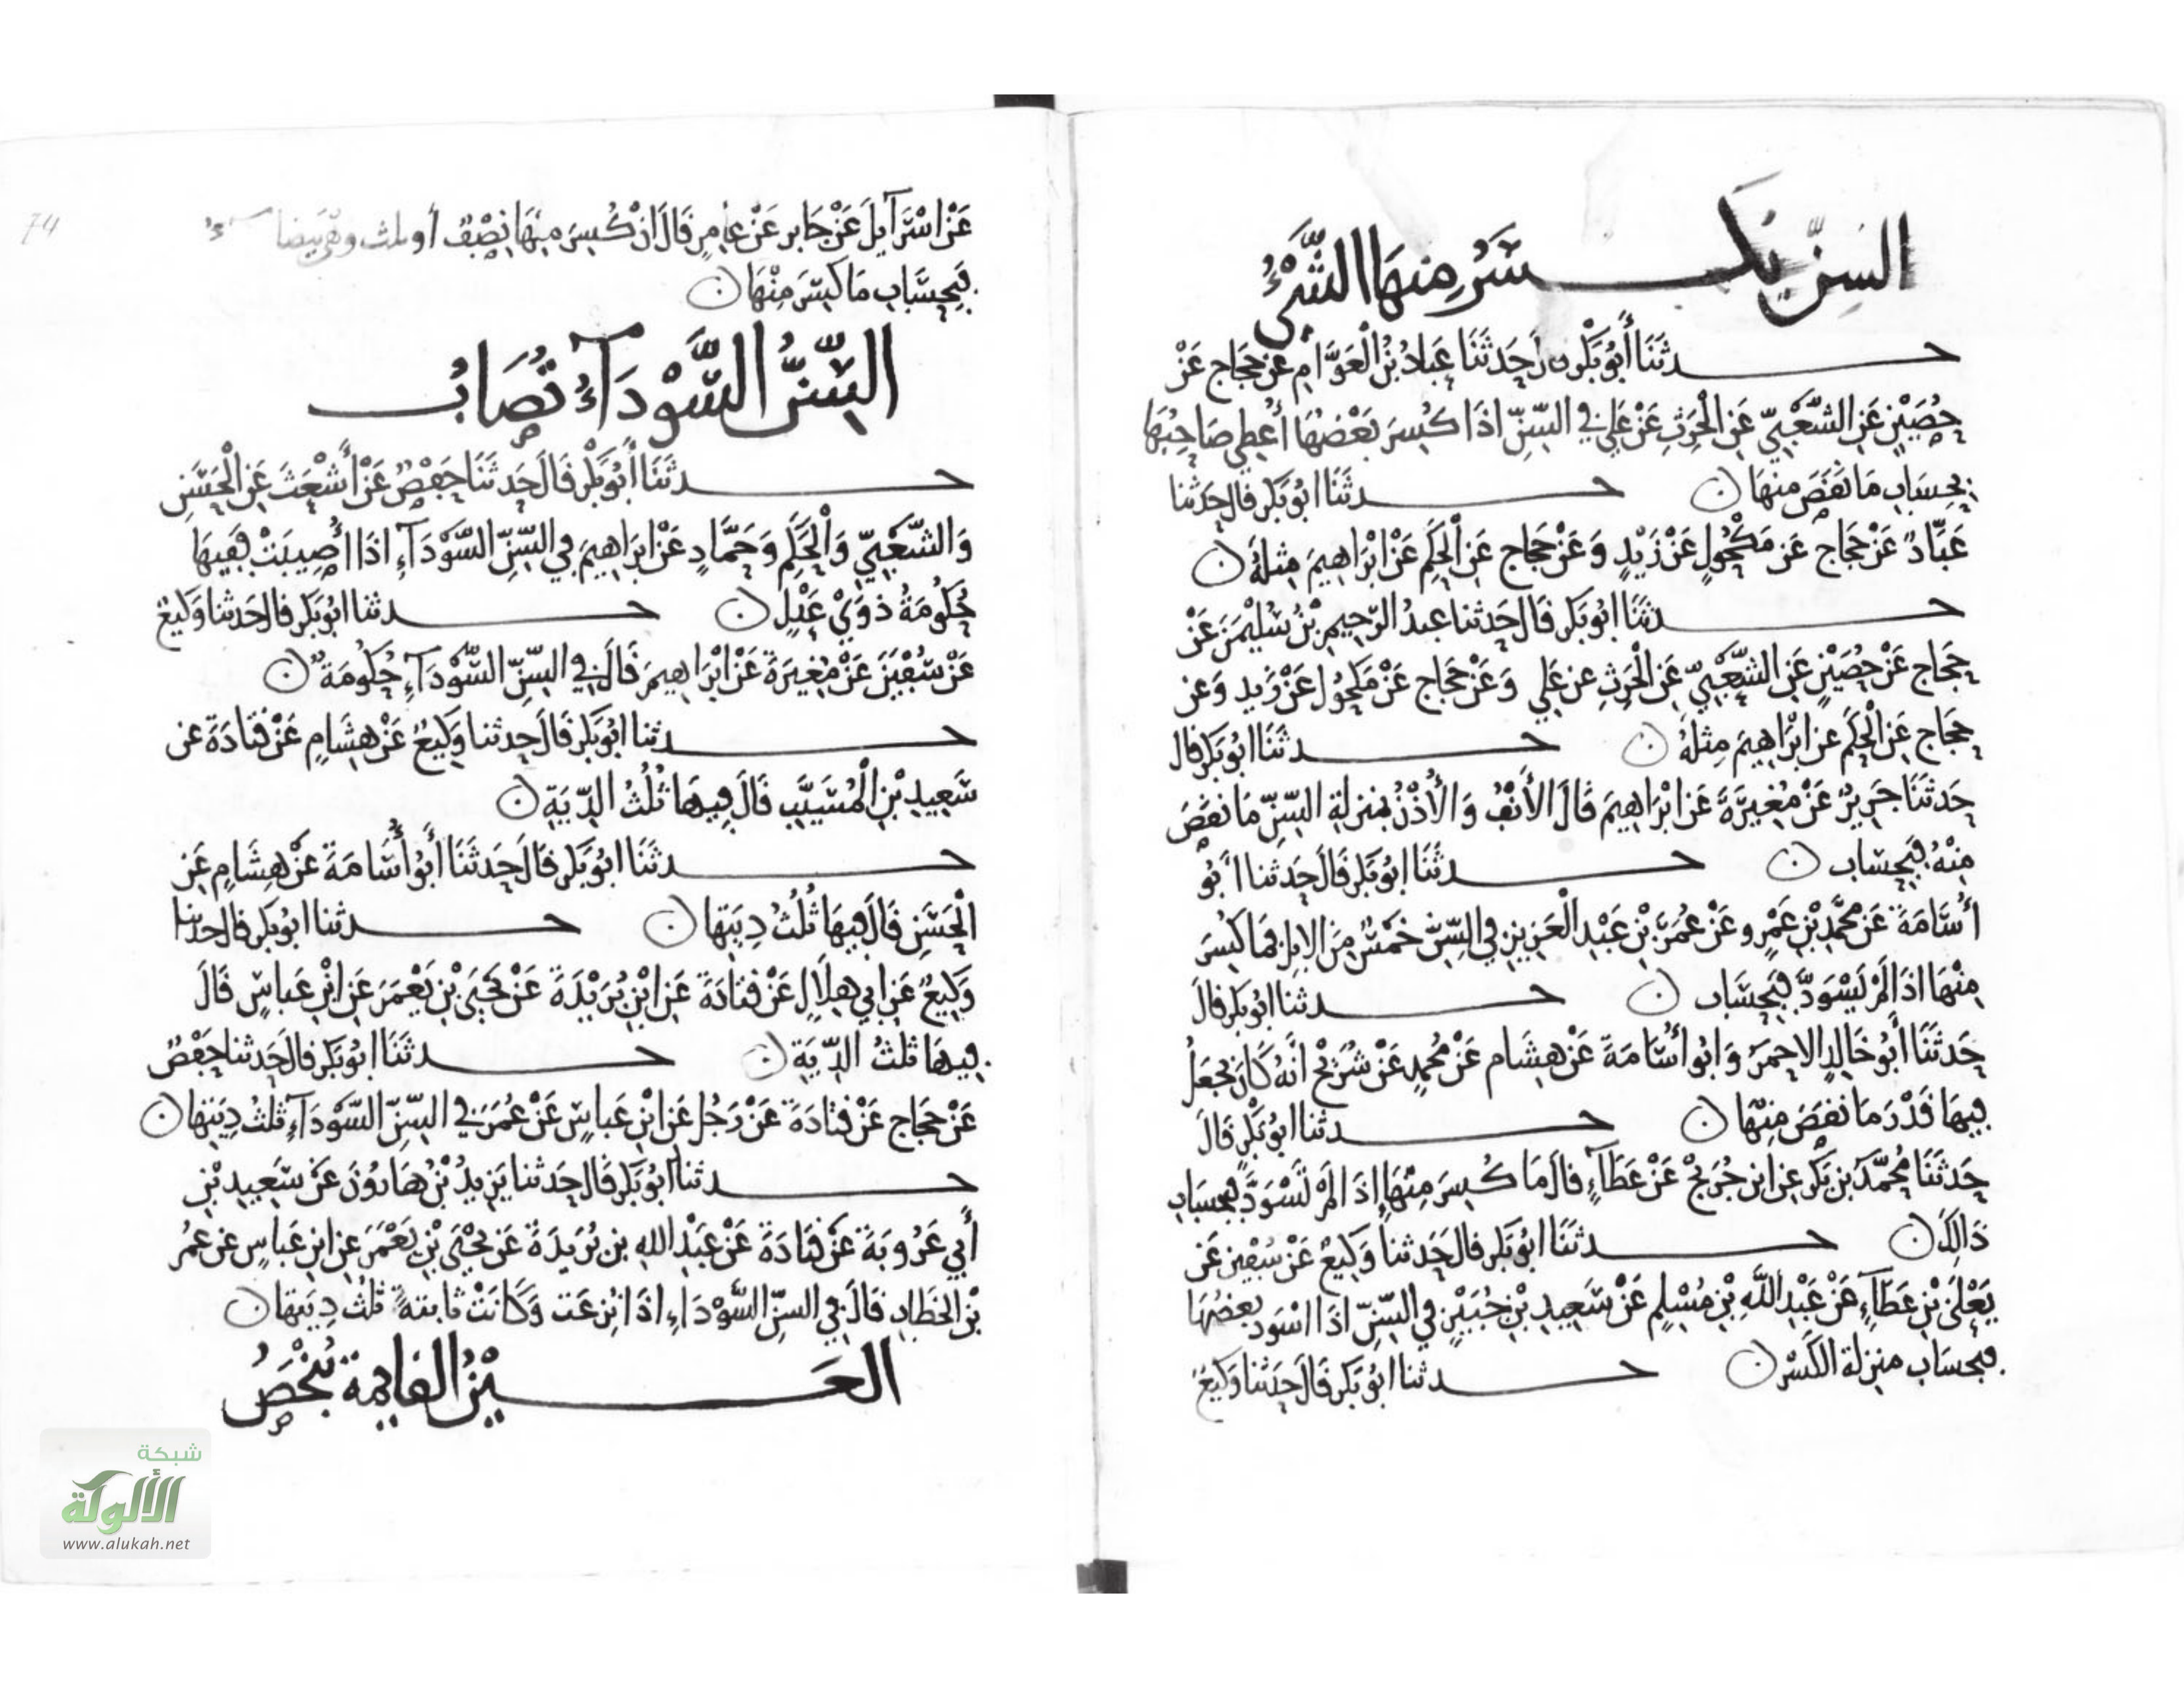 السِنّ يُكسَرُ مِنهَا الشَّيْءُ
حدثَنَا أَبُو بَكْرٍ قال حَدثَنَا عَبادُ بْنُ الْعَوَّامِ عَنْ حَجَّاجٍ عَنْ
حُصَيْنٍ عَنِ الشَّعْبِيّ عَنِ الْحَرِثِ عَنْ عَلِي في السِّنِّ اذَا كُسِرَ بَعْضُهَا أُعْطِي صَاحِبُهَا
بِحِسَابِ مَا نَقَصَ مِنهَا ن حدثَنَا ابُو بَكرٍ قال حَدثنا
عَبَّادٌ عَنْ حَجَّاجٍ عَن مَكْحُولٍ عَنْ زَيْدٍ وَعَنْ حَجَّاجٍ عَنِ الْحَكَمِ عَنْ ابْرَاهِيمَ مِثلَهُ ن
حدثَنَا ابُو بَكرٍ قَالَ حَدثنا عبدُ الرّحِيمِ بْنُ سُلَيْمَنَ عَنْ
حَجَّاجٍ عَنْ حُصَيْنٍ عَنِ الشَّعْبِيّ عَنِ الْحَرِثِ عن عَلِي وَعَنْ حَجَّاجٍ عَنْ مَكْحُولٍ عَنْ زَيدٍ وَعَن
حَجَّاجٍ عَنِ الْحَكَمِ عن ابْرَاهِيمَ مِثلَهُ ن حدثَنَا ابُو بَكرٍ قال
حَدثَنَا جَرِيرٌ عَنْ مُغِيرَةَ عَن ابْرَاهِيمَ قَالَ الأَنْفُ وَالأُذْنُ بِمَنزلةِ السِّنّ مَا نقَصَ
مِنْهُ فَبِحِسَابٍ ن حدثَنَا ابُو بَكرٍ قَالَ حَدثنا أبُو
أُسَامَةَ عَن مُحَمَّدِ بْنِ عَمْرٍو عَنْ عُمَرَ بْنِ عَبْدِ الْعَزِيزِ في السِّنِّ خَمْسٌ مِنَ الابِلِ فمَا كُسِرَ
مِنْهَا اذَا لَمْ يَسْوَدَّ فَبِحِسَابٍ ن حدثنا ابُو بَكرٍ قالَ
حَدثَنَا أَبُو خَالِدٍ الاحمَرُ وَابُو أُسَامَةَ عَنْ هِشَامٍ عَنْ مُحمدٍ عَنْ شُرَيْحٍ انَّهُ كَانَ يَجْعَلُ
فِيهَا قَدْرَ مَا نَقَصَ مِنْهَا ن حدثنا ابُو بَكْرٍ قَالَ
حَدثَنَا مُحَمَّدُ بن بَكْرٍ عنِ ابنِ جُرَيْجٍ عَنْ عَطَآءٍ قالَ مَا كُسِرَ مِنْهَا إِذَا لَمْ تَسْوَدَّ فبحِسَابِ
ذَالِكَ ن حدثَنَا ابُو بَكرٍ قالَ حَدثنا وَكِيعٌ عَنْ سُفيَنَ عَنْ
يَعْلَى بْنِ عَطَآءٍ عَنْ عَبْدِ اللَّهِ بْنِ مُسْلِمٍ عَنْ سَعِيدِ بْنِ جُبَيْرٍ في السِّنِّ اذَا اسْوَدَّ بعضُهَا
فبحِسَاب منزلة الكَسْرِ ن حدثنا ابُو بَكرٍ قَالَ حَدثنا وَكِيعٌ
عَنْ اسْرَآيلَ عَنْ جَابرٍ عَنْ عَامِرٍ قَالَ انْ كُسِرَ مِنهَا نِصْفٌ أو ثلث وهي بَيضاءُ
فَبِحِسَابِ مَا كُسِرَ مِنْهَا ن
السِّنُّ السَّوْدَآءُ تُصَابُ
حدثَنَا أَبُو بَكْرٍ قَالَ حَدثَنَا حَفْصٌ عَنْ أَشْعَثَ عَنِ الْحَسَنِ
وَالشَّعْبِيّ وَالْحَكَمِ وَحَمَّادٍ عَنْ ابْرَاهِيمَ في السِّنّ السَّوْدَآءِ اذَا أُصِيبَتْ فَفِيهَا
حُكُومَةُ ذوَيْ عَدْلٍ ن حدثنا ابُو بَكرٍ قالَ حَدثنا وَكِيعٌ
عَنْ سُفْيَنَ عَنْ مُغِيرَةَ عَنْ ابْرَاهِيمَ قَالَ في السِّنّ السَّوْدَآءِ حُكُومَةٌ ن
حدثنا ابُو بَكرٍ قَالَ حدثنا وَكِيعٌ عَنْ هِشَامٍ عَنْ قَتَادَةَ عن
سَعِيدِ بْنِ الْمُسَيَّبِ قَالَ فِيهَا ثُلُثُ الدِّيَةِ ن
حدثَنَا ابُو بَكرٍ قَالَ حَدثَنَا أَبُو أُسَامَةَ عَنْ هِشَامٍ عَنِ
الْحَسَنِ قَالَ فِيهَا ثُلُثُ دِيَتِهَا ن حدثنا ابُو بَكرٍ قالَ حدثنا
وَكِيعٌ عَن ابي هِلَالٍ عَنْ قَتَادَةَ عَنِ ابْنِ بُرَيْدَةَ عَنْ يَحْيَى بْنِ يَعْمَرَ عَنِ ابْنِ عَبَاسٍ قَالَ
فِيهَا ثلثُ الدِّيَةِ ن حدثَنَا ابُو بَكرٍ قالَ حَدثنا حَفْصٌ
عَنْ حَجَّاجٍ عَنْ قَتَادَةَ عَنْ رَجُلٍ عَنِ ابْنِ عَبَاسٍ عَنْ عُمَرَ في السِّنِّ السَّوْدَآءِ ثلثُ دِيَتِهَا ن
حدثنا ابُو بَكرٍ قالَ حَدثنا يَزِيدُ بْنُ هَارُونَ عَنْ سَعِيدِ بْنِ
أَبِي عَرُوبَةَ عَنْ قَتَادَةَ عَنْ عَبْدِ اللهِ بن بُرَيدَةَ عَنْ يَحْيَى بْنِ يَعْمَرَ عَنِ ابنِ عَبَاسٍ عن عُمَرَ
بْنِ الخَطَّابِ قَالَ في السِّنِّ السَّوْدَاءِ اذَا نُزِعَت وَكَانَتْ ثابتةً ثلُثُ دِيَتِهَا ن
العَيْنُ القايمة تُبْخَصُ
74
شبكة
الألوكة
www.alukah.net